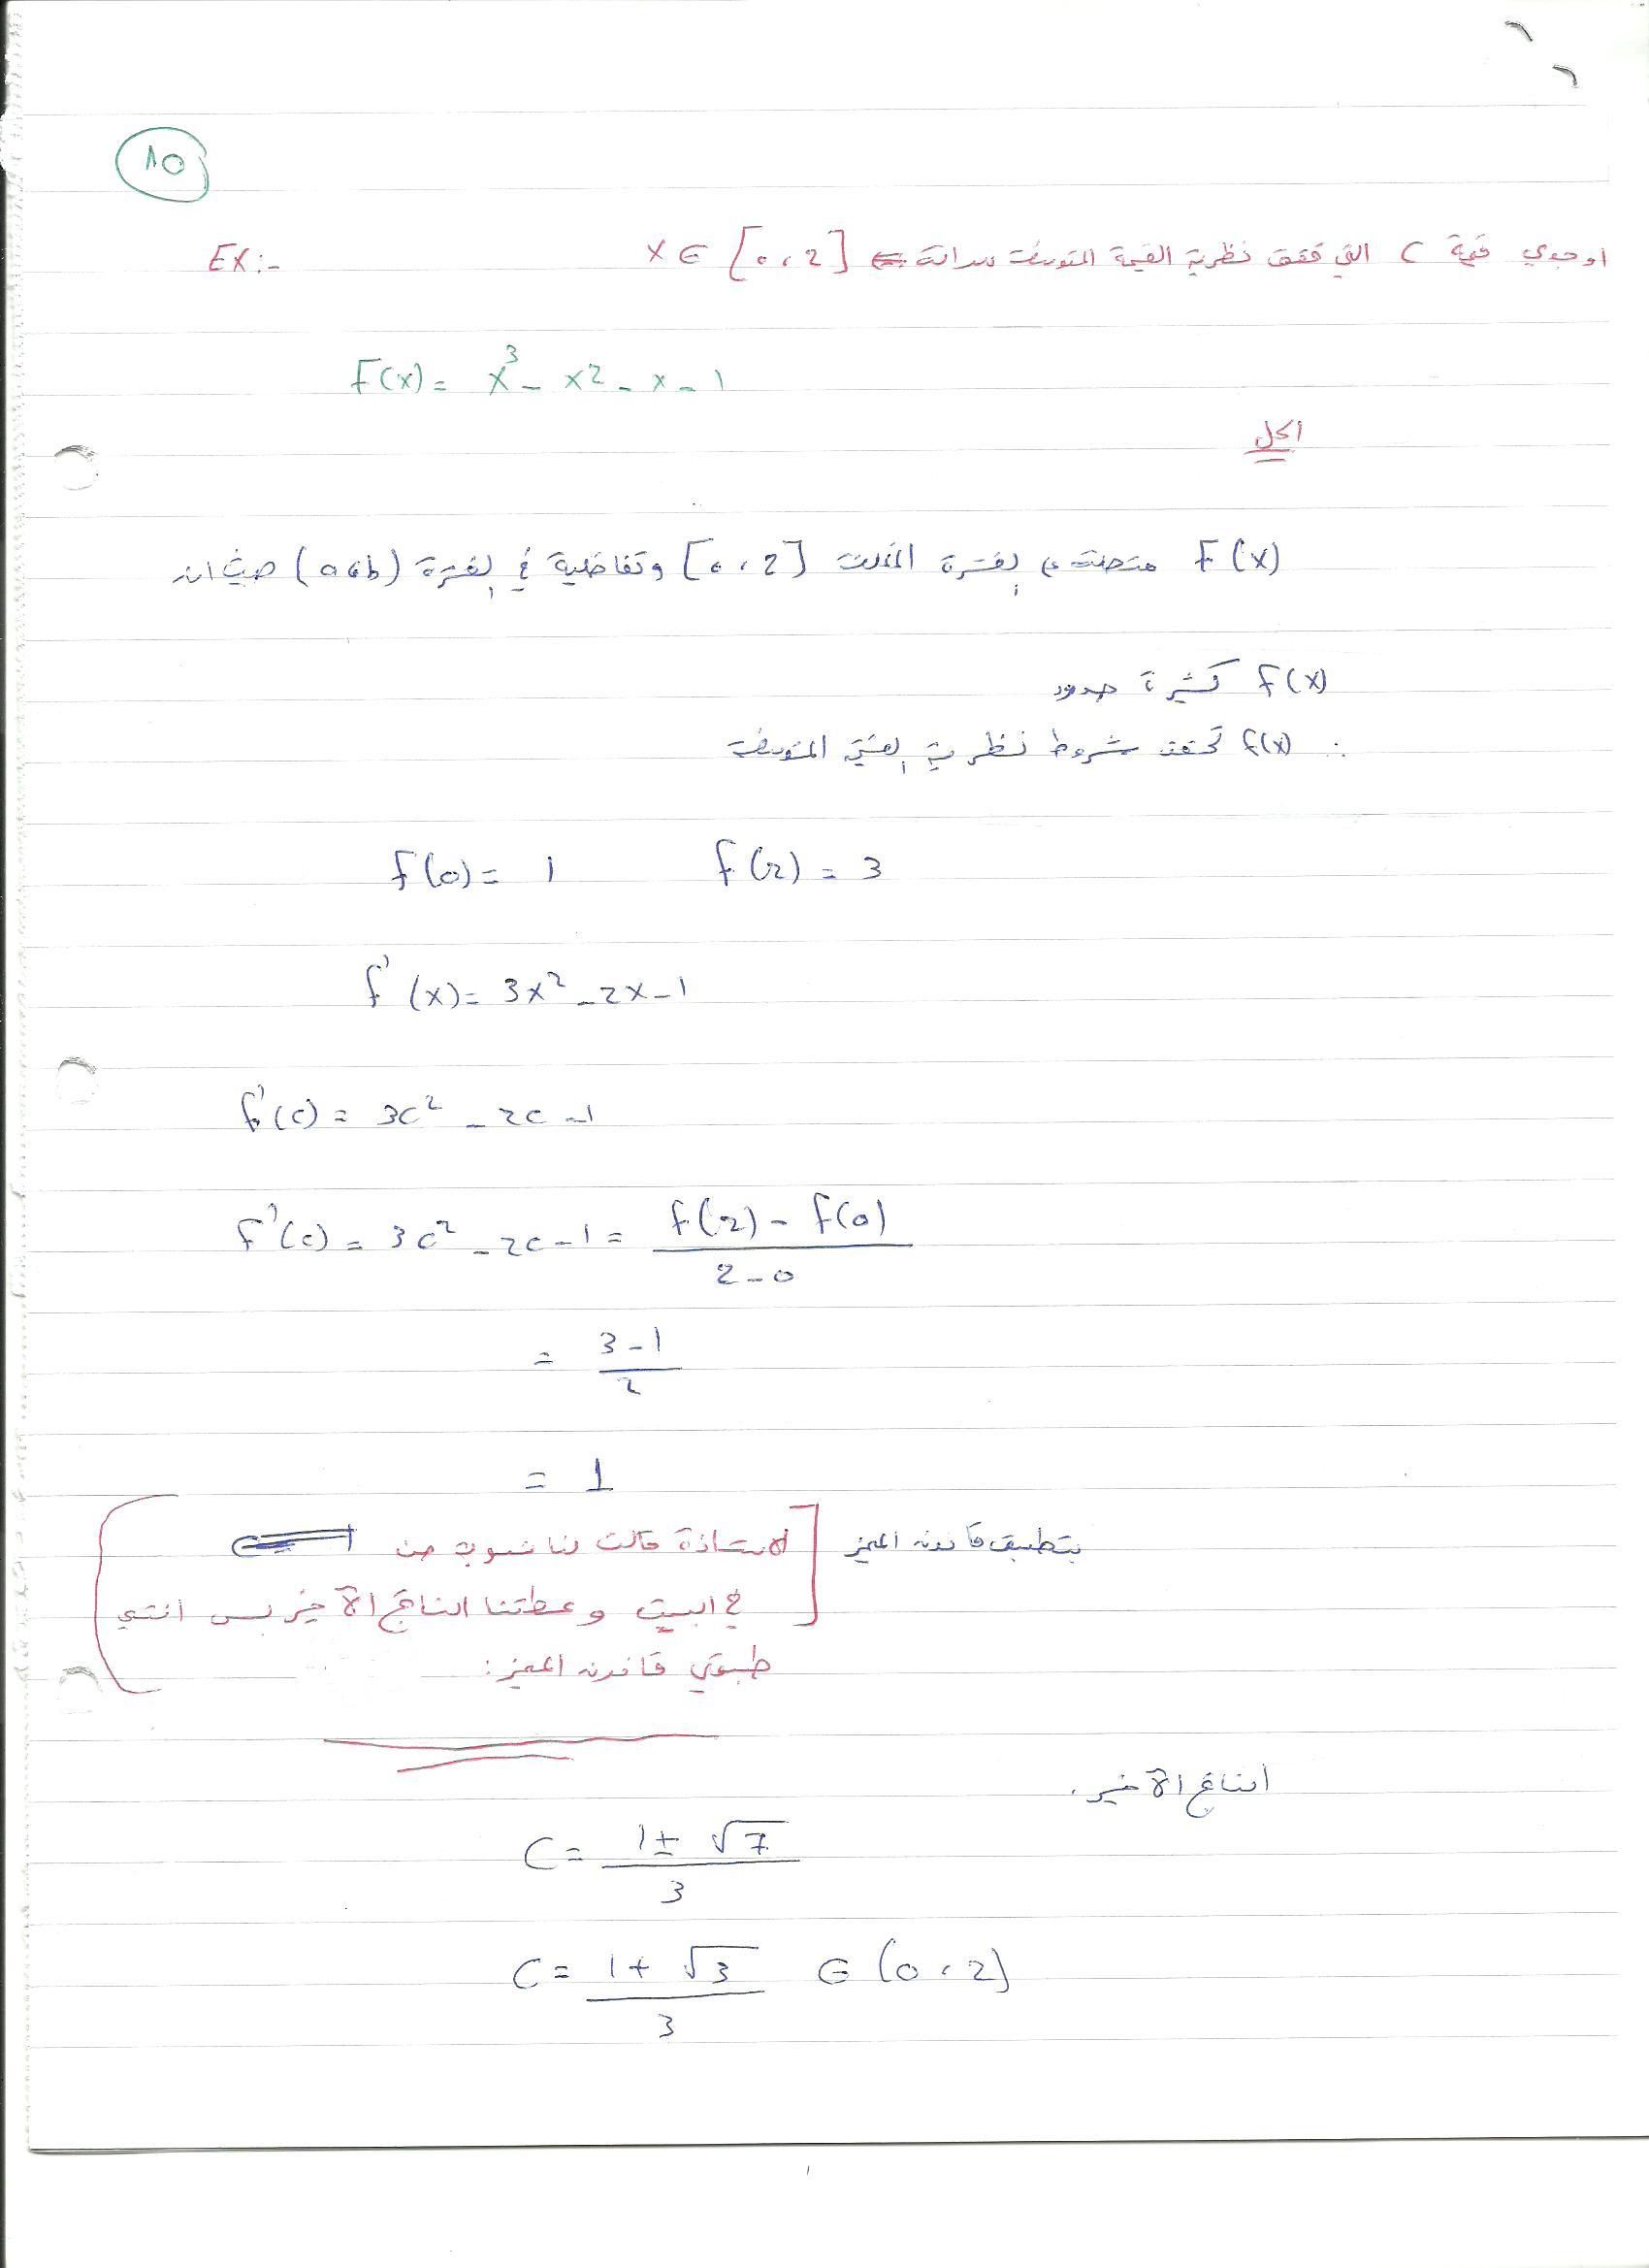 10
اوجدي قيمة C التي تحقق نظرية القيمة المتوسطة للدالة x ∈ [0,2] EX:-
F(x) = x³ - x2 - x - 1
الحل
F(x) متصلة في الفترة المغلقة [0,2] وتفاضلية في الفترة (a,b) حيث ان
F(x) كثيرة حدود
∴ f(x) تحقق شروط نظرية القيمة المتوسطة
f(0) = 1 f(2) = 3
f'(x) = 3x² - 2x - 1
f'(c) = 3c² - 2c - 1
f'(c) = 3c² - 2c - 1 = f(2) - f(0) / 2 - 0
= 3 - 1 / 2
= 1
بتطبيق قانون المميز [الاستاذة قالت لنا
في البيت وعطتنا الناتج الآخير بس انتي
طبقي قانون المميز:
الناتج الآخير.
C = 1 ± √7 / 3
C = 1 + √3 / 3 ∈ (0,2)